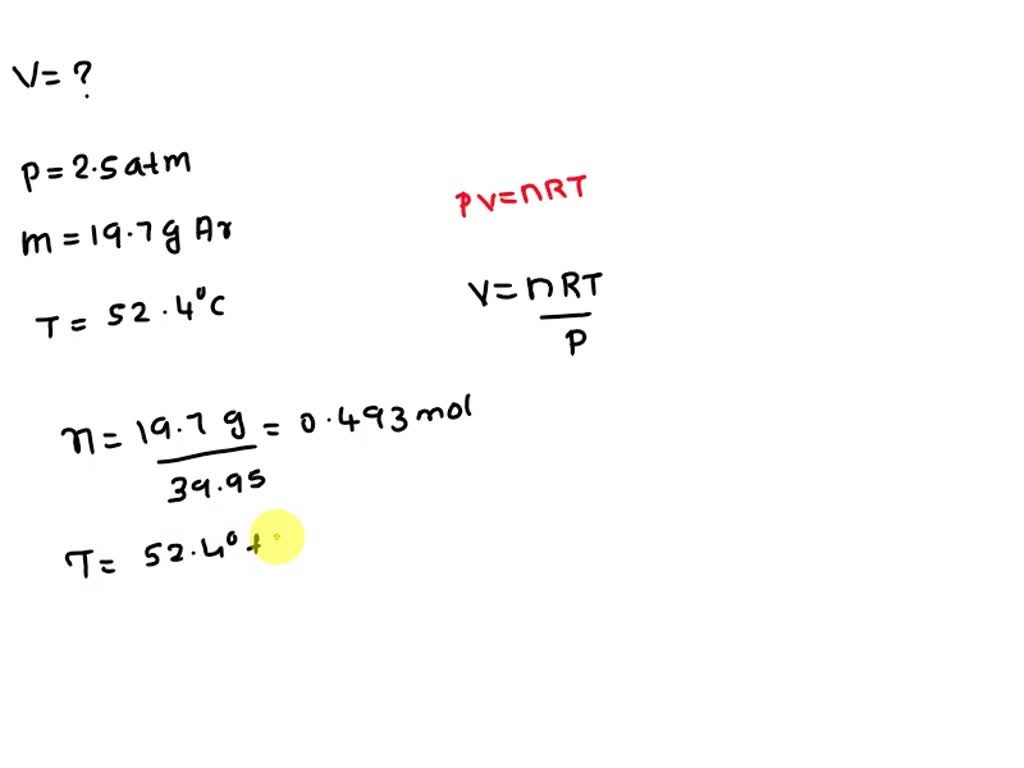 V= ?
P=2.5atm
m=19.7g Ar
T= 52.4°C
PV=nRT
V=nRT
P
n= 19.7 g = 0.493 mol
39.95
T= 52.4° +